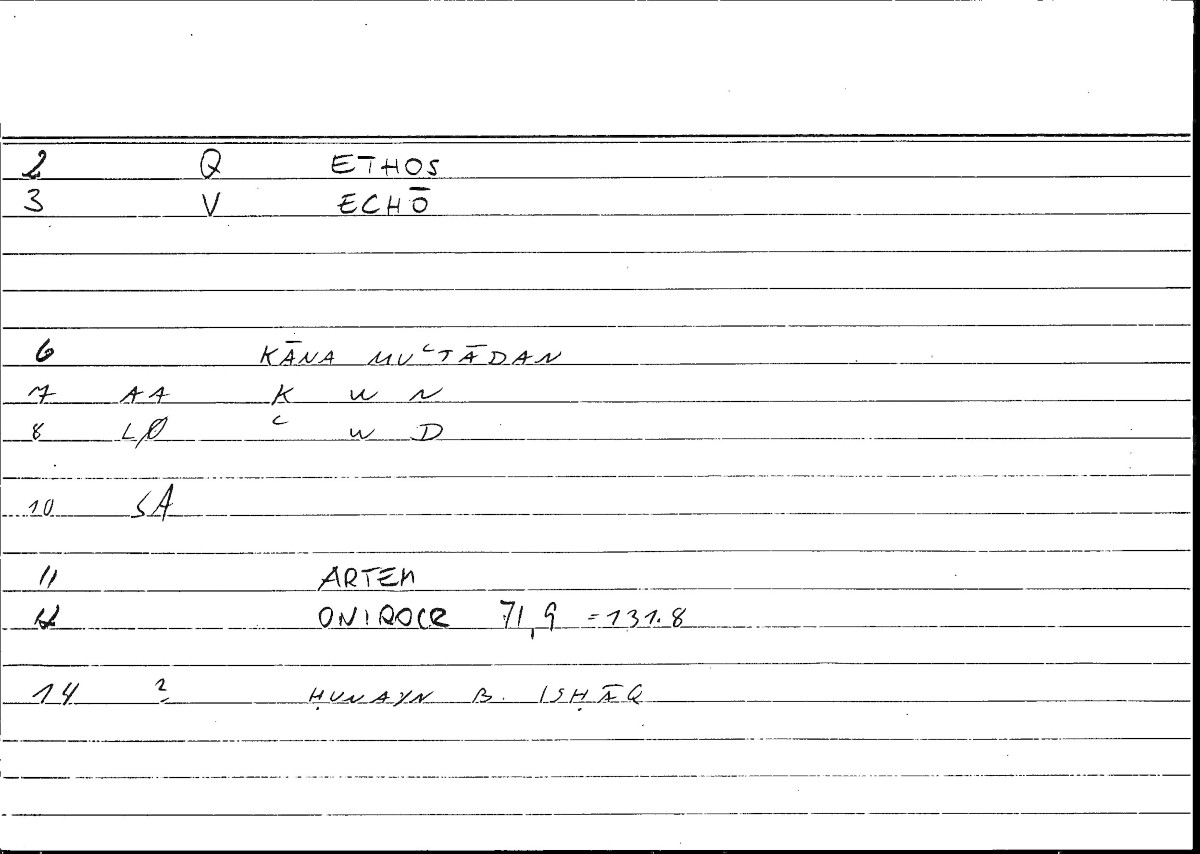 2 Q ETHOS
3 V ECHŌ
6 KĀNA MUʿTĀDAN
7 AA K W N
8 LØ ʿ W D
10 SA
11 ARTEM
12 ONIROCR 71,9 =131.8
14 ? ḤUNAYN B. ISḤĀQ